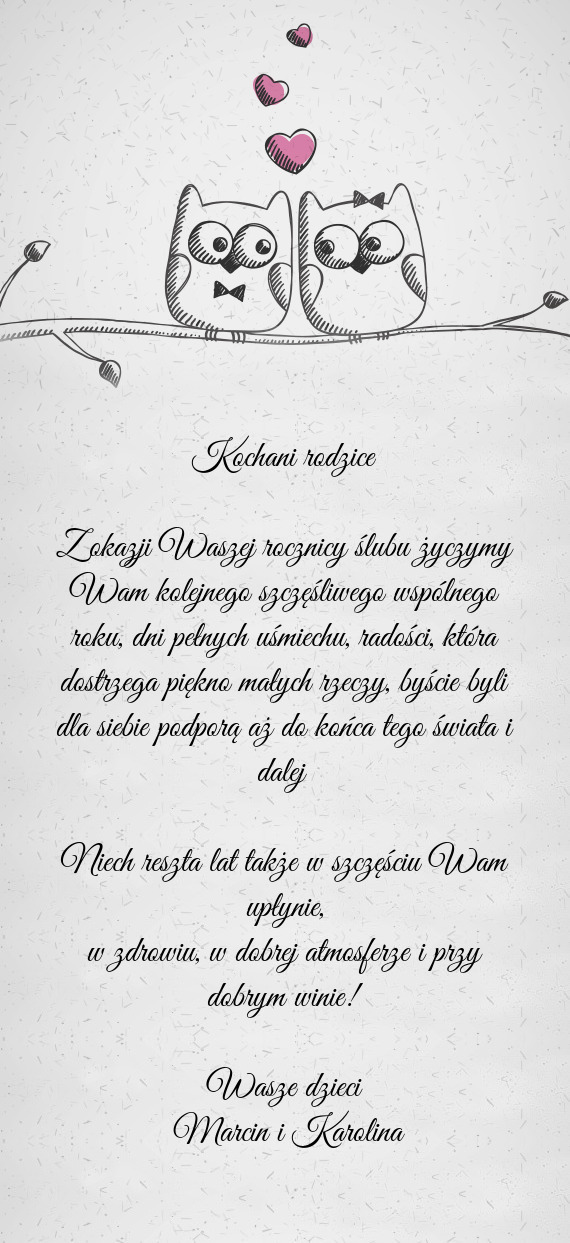 Kochani rodzice
Z okazji Waszej rocznicy ślubu życzymy
Wam kolejnego szczęśliwego wspólnego
roku, dni pełnych uśmiechu, radości, która
dostrzega piękno małych rzeczy, byście byli
dla siebie podporą aż do końca tego świata i
dalej
Niech reszta lat także w szczęściu Wam
upłynie,
w zdrowiu, w dobrej atmosferze i przy
dobrym winie!
Wasze dzieci
Marcin i Karolina